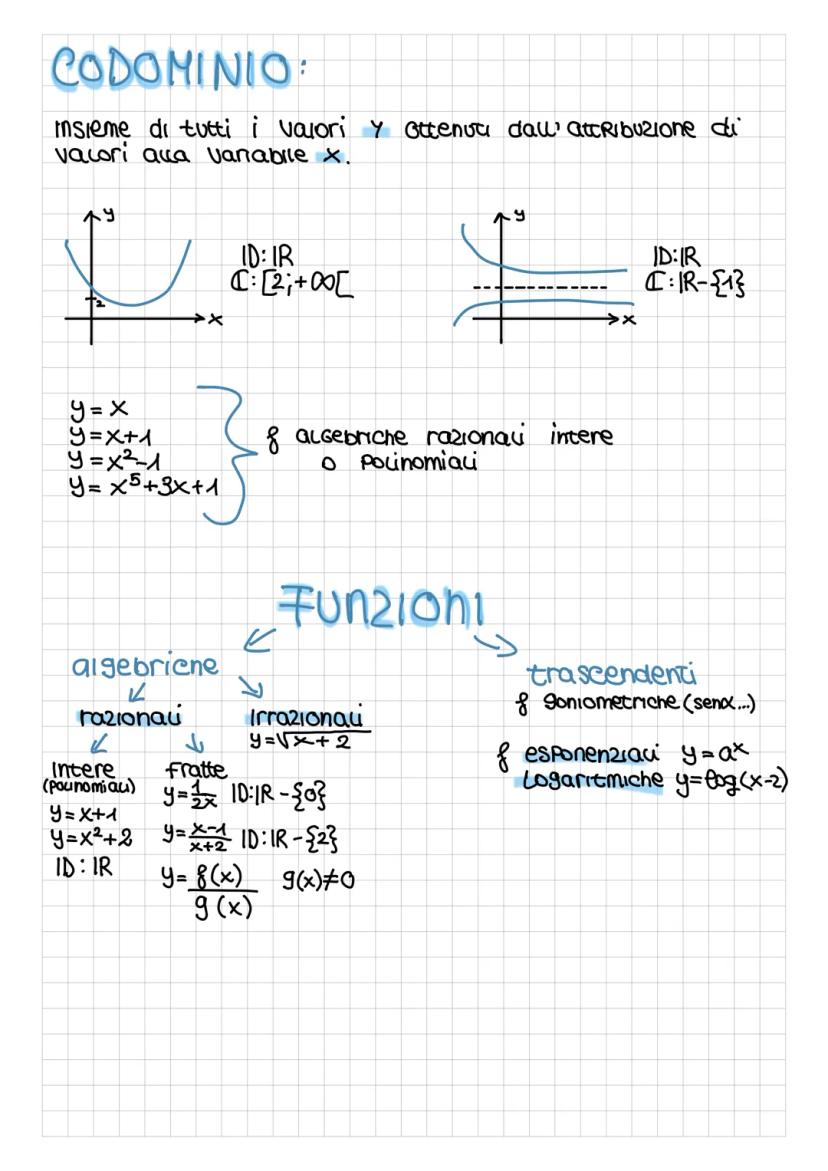 CODOMINIO:
insieme di tutti i valori y ottenuti dall'attribuzione di
valori alla variabile x.
y
ID: IR
C: [2;+∞[
2
x
y
ID: IR
C: IR-{1}
x
y = x
y = x+1
y = x²-1
y = x⁵+3x+1
f algebriche razionali intere
o polinomiali
Funzioni
algebriche
trascendenti
f goniometriche (senx...)
razionali
irrazionali
y=√x+2
f esponenziali y=aˣ
logaritmiche y=log(x-2)
Intere
(polinomiali)
y=x+1
y=x²+2
ID: IR
fratte
y=1/2x ID: IR-{0}
y=x-1/x+2 ID: IR-{2}
y=f(x)/g(x) g(x)≠0